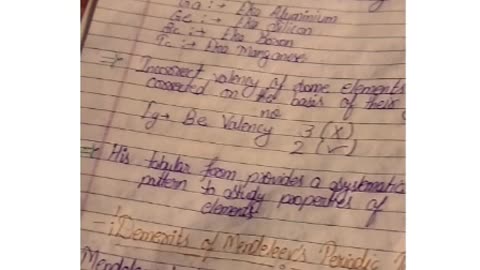 Ga :→ Eka Aluminium
Ge :→ Eka Silicon
Sc :→ Eka Boron
Tc :→ Eka Manganese
⇒ Incorrect valency of some elements
corrected on the basis of their
no
Eg→ Be Valency 3 (×)
2 (✓)
⇒ His tabular form provides a systematic
pattern to study properties of
elements
Demerits of Mendeleev's Periodic